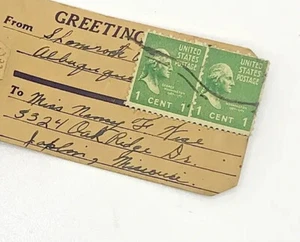 GREETING
From Shamrock
Albuquerque
UNITED STATES POSTAGE
1 CENT 1
UNITED STATES POSTAGE
1 CENT 1
To Miss Nancy
3324 Oak Ridge Dr.
Joplin, Missouri.